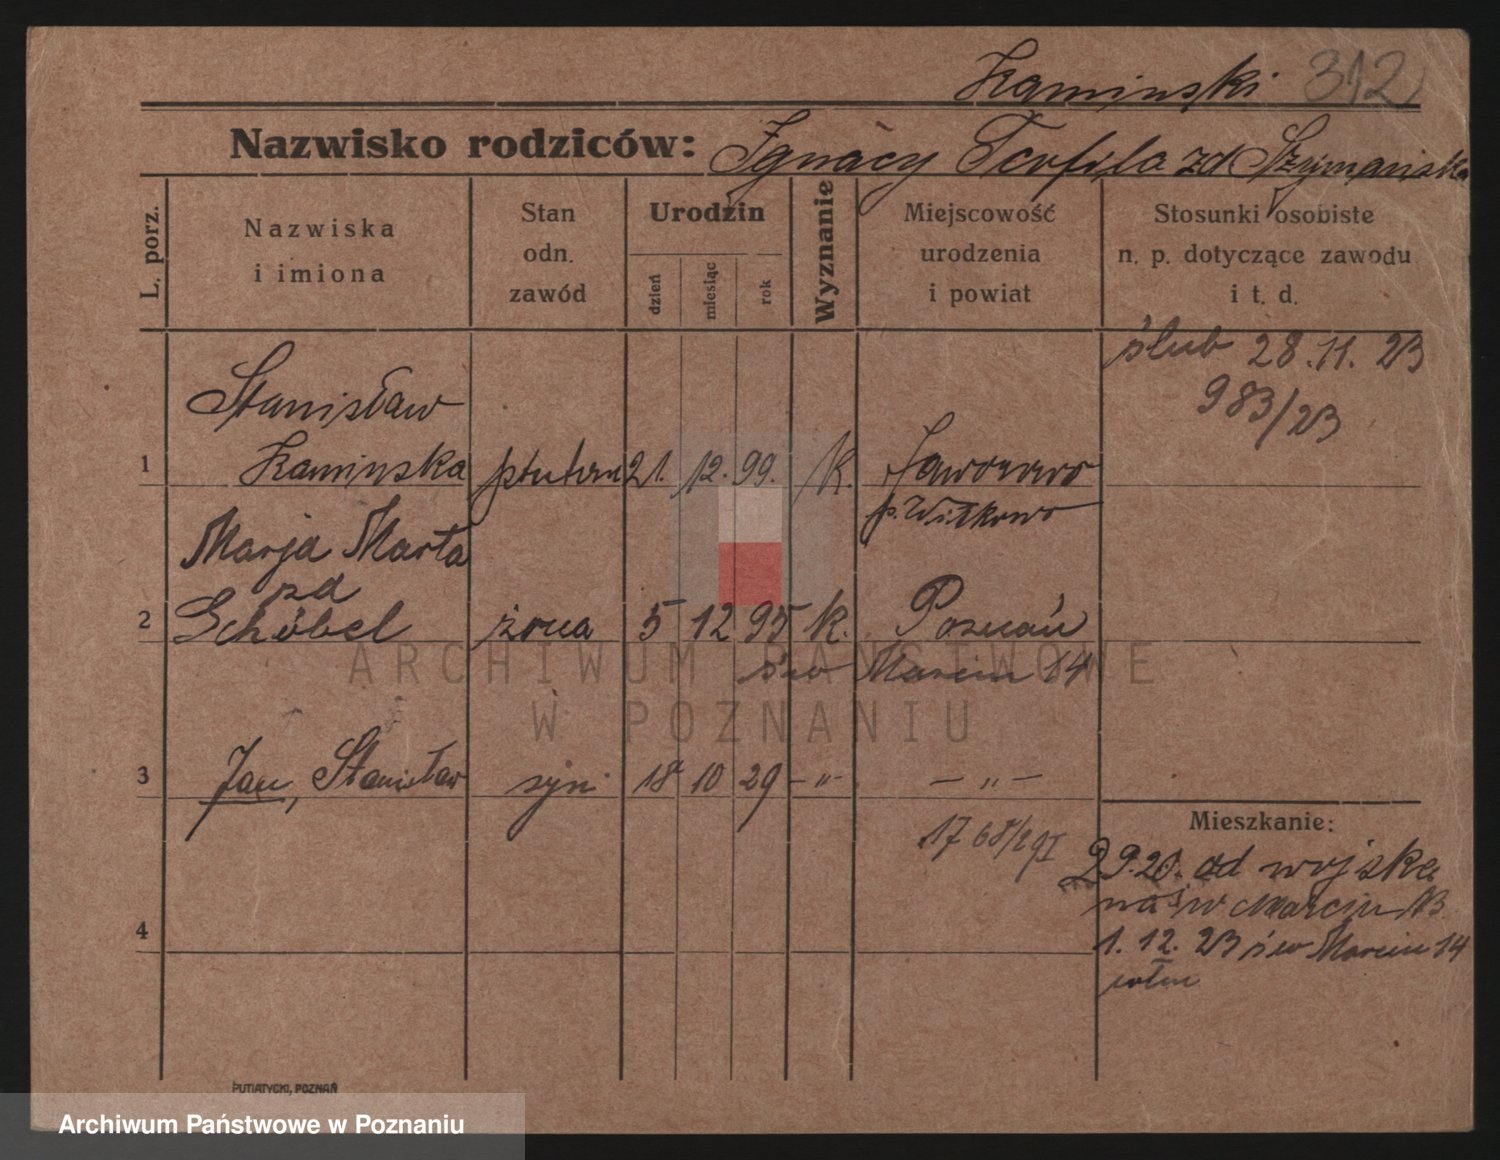 Kaminski 312
Nazwisko rodziców: Ignacy Teofila zd Szymańska
L. porz.
Nazwiska
i imiona
Stan
odn.
zawód
Urodzin
dzień
miesiąc
rok
Wyznanie
Miejscowość
urodzenia
i powiat
Stosunki osobiste
n. p. dotyczące zawodu
i t. d.
ślub 28.11.23
983/23
Stanisław
1 Kaminska 21. 12. 99. K. Jaworowo
p. Witkowo
Marja Marta
zd
2 Schöbel żona 5 12 95 K. Poznań
św Marcin 14
3 Jan, Stanisław syn 18 10 29 -"- -"-
1768/29I
Mieszkanie:
29.20. od wojska
na św Marcin 13
4
1. 12. 23 św Marcin 14
PUTIATYCKI, POZNAŃ
ARCHIWUM PAŃSTWOWE
W POZNANIU
Archiwum Państwowe w Poznaniu